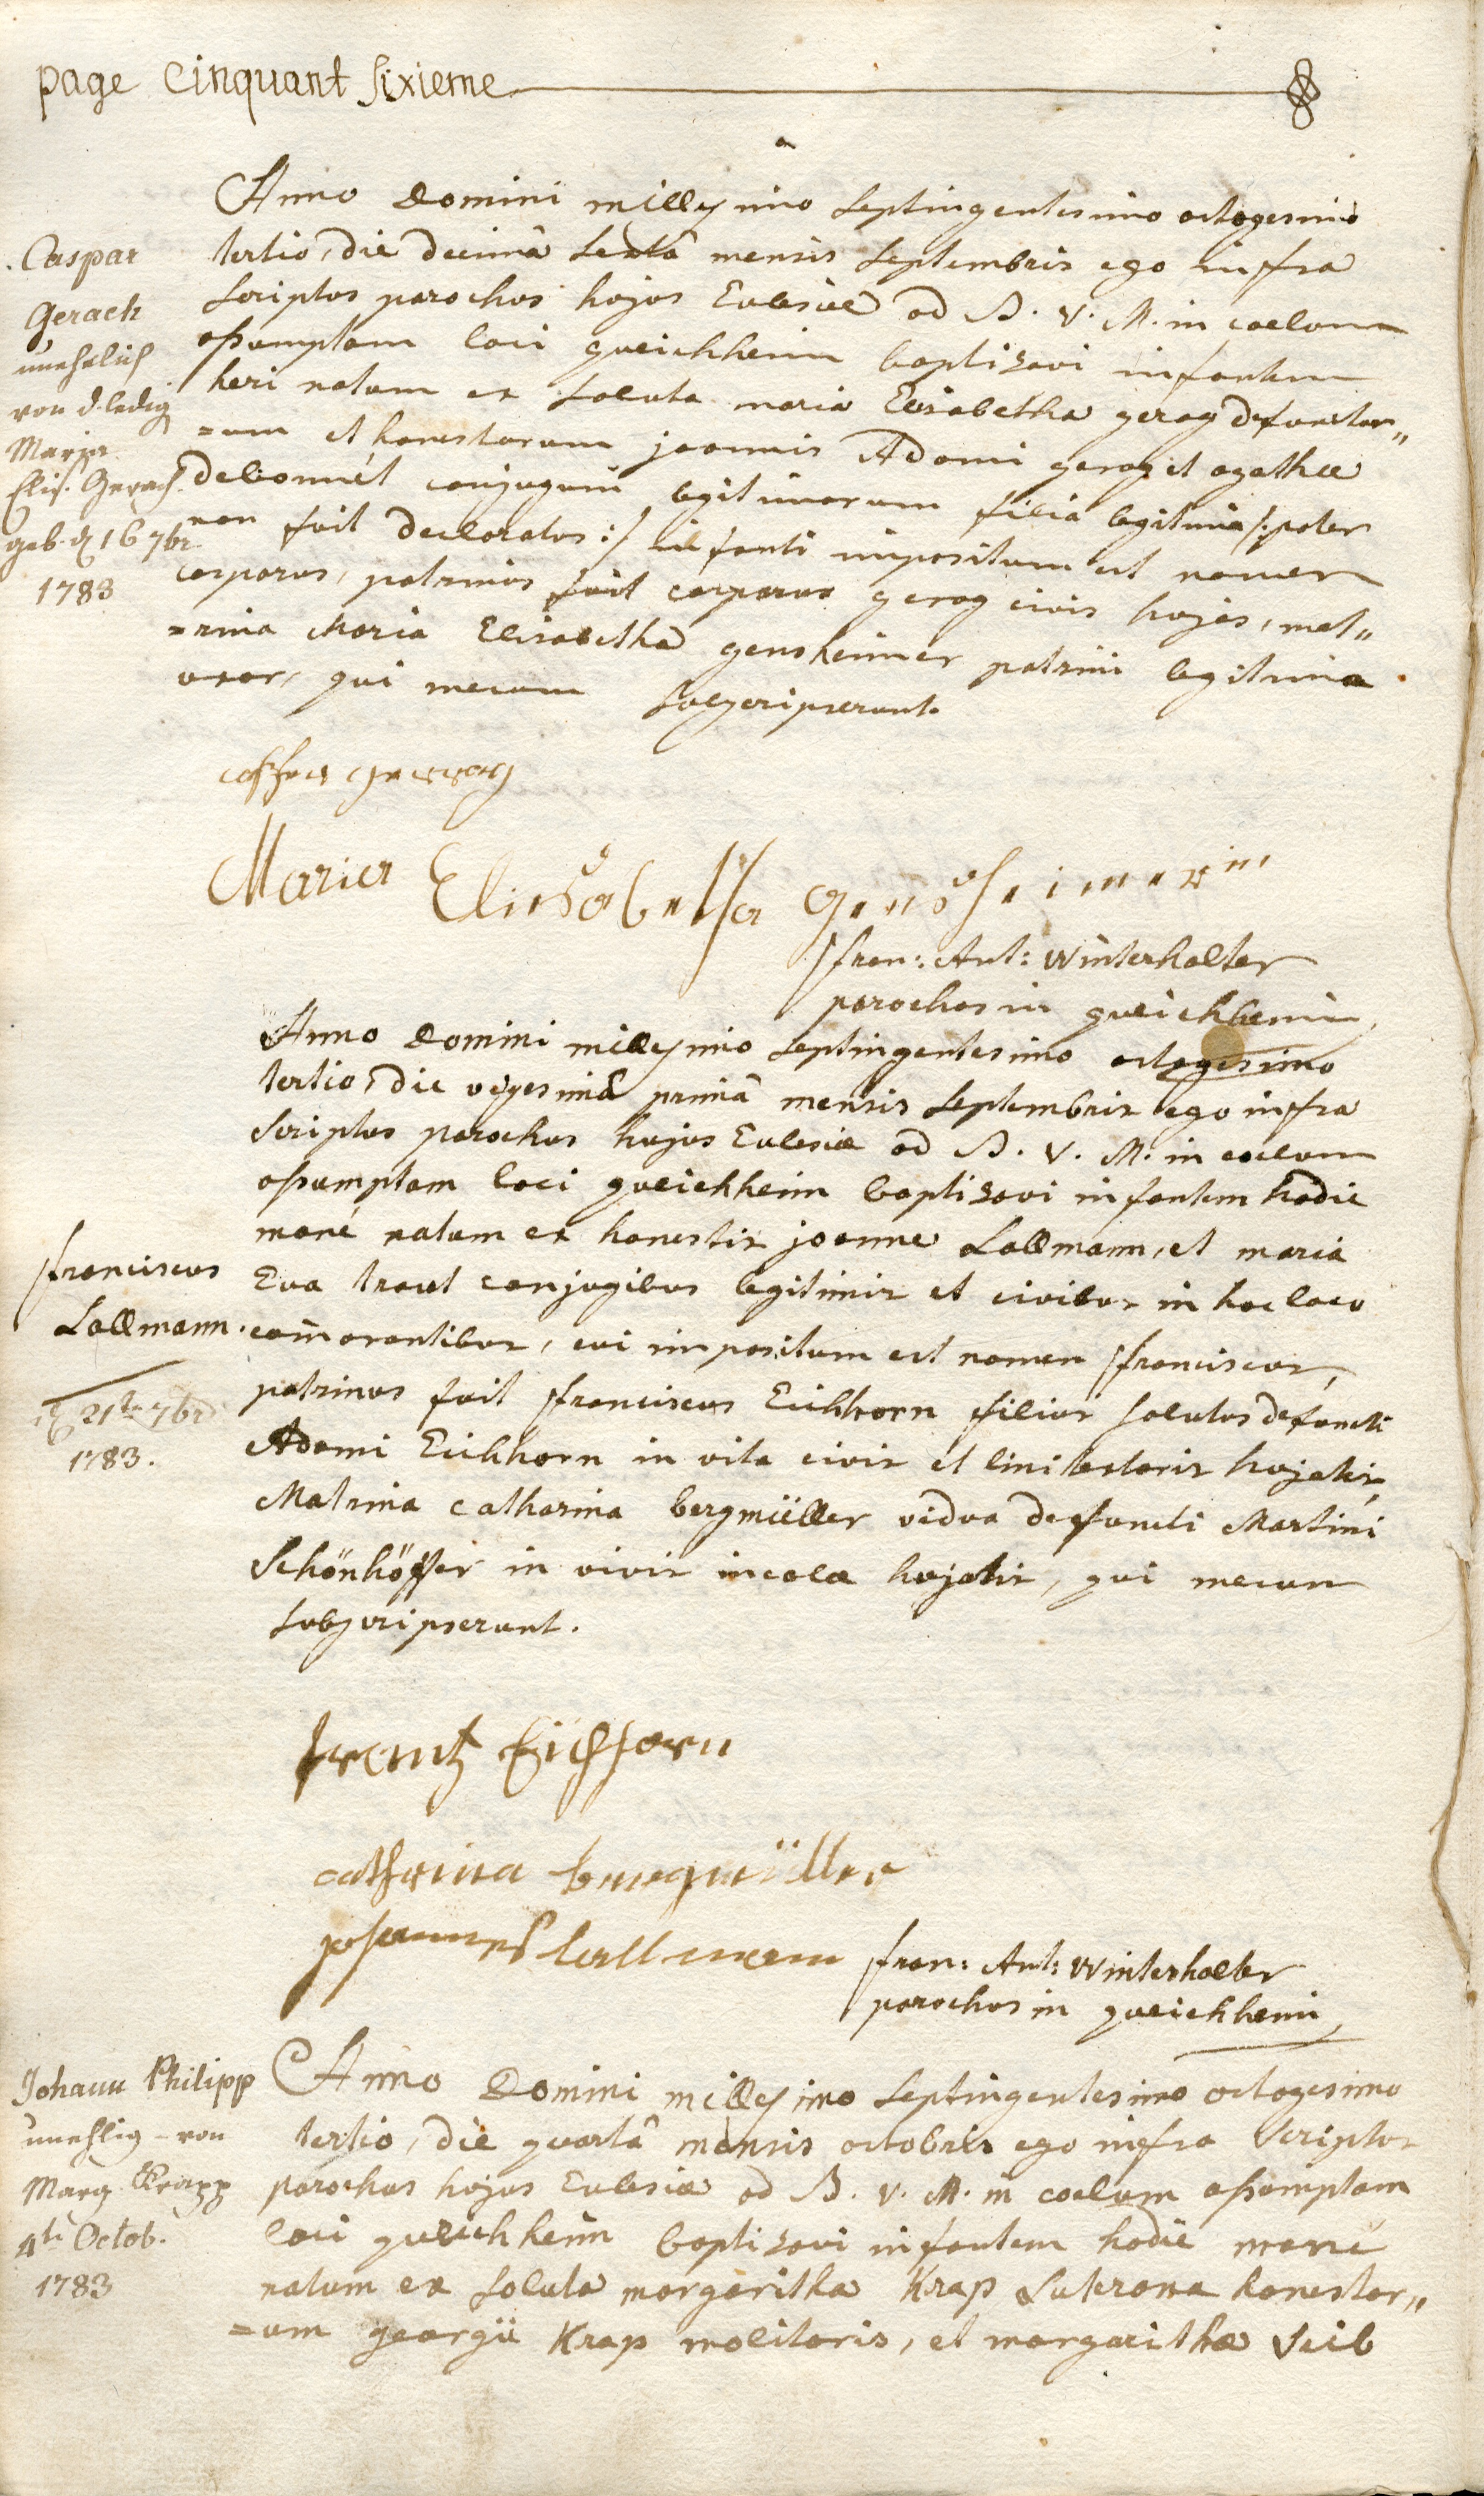 page Cinquant sixieme
Anno Domini millesimo septingentesimo octogesimo
tertio, die decimâ sextâ mensis septembris ego infra
scriptus parochus hujus Eclesiae ad B. V. M. in coelum
assumptam loci queichheim baptisavi infantem
heri natum ex soluta maria Elisabetha gerag defunctor„
=um et honestorum joannis Adami gerag et agathae
debonnét conjugum legitimorum filia legitima /: pater
non fuit declaratus :/ infanti impositum est nomen
casparus, patrinus fuit casparus gerag civis hujas, mat„
=rina Maria Elisabetha gensheimer patrini legitima
uxor, qui mecum subscripserunt.
.Caspar
Gerach
unehelich
von d. ledig
Maria
Elis. Gerach
geb. d 16 7br
1783
Maria Elisabetha Gensheimerin
fran: Ant: Winterhalter
parochus in queichheim
Anno Domini millesimo septingentesimo octogesimo
tertio, die vigesimâ primâ mensis septembris ego infra
scriptus parochus hujus Eclesiae ad B. V. M. in coelum
assumptam loci queichheim baptisavi infantem hodie
mané natum ex honestis joanne Lallmann, et maria
Eva traut conjugibus legitimis et civibus in hoc loco
com̄orantibus, cui impositum est nomen franciscus,
patrinus fuit franciscus Eichhorn filius solutus defuncti
Adami Eichhorn in vita civis et linitextoris hujatis,
Matrina catharina bergmüller vidua defuncti Martini
Schönhöffer in vivis incolae hujatis, qui mecum
subscripserunt.
franciscus
Lallmann.
21te 7br
1783.
frantz Eichhorn
catharina bergmüller
johannes lallmann
fran: Ant: Winterhalter
parochus in queichheim
Anno Domini millesimo septingentesimo octogesimo
tertio, die quartâ mensis octobris ego infra scriptus
parochus hujus Eclesiae ad B. V. M. in coelum assumptam
loci queichheim baptisavi infantem hodie mané
natum ex soluta margaritha Krap Luterana honestor„
=um georgii Krap molitoris, et margarithae Seib
Johann Philipp
unehlig - von
Marg. Krapp
4te Octob.
1783